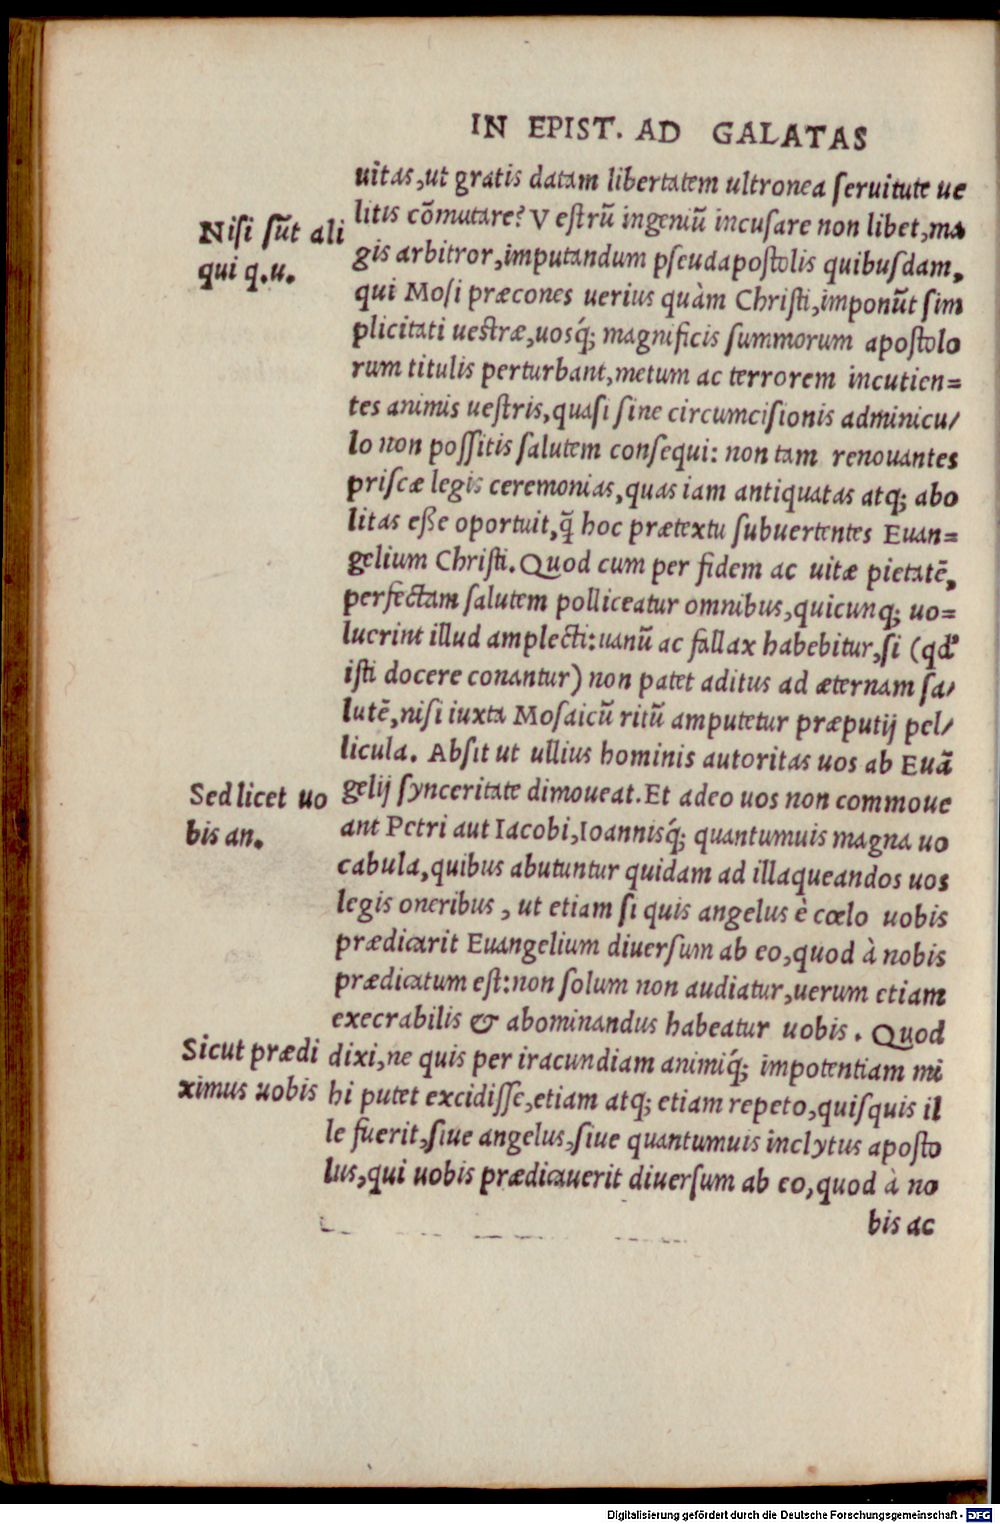 IN EPIST. AD GALATAS
uitas, ut gratis datam libertatem ultronea seruitute ue
litis cõmutare? Vestrũ ingeniũ incusare non libet, ma
Nisi sũt ali
gis arbitror, imputandum pseudapostolis quibusdam,
qui q.u.
qui Mosi præcones uerius quàm Christi, imponũt sim
plicitati uestræ, uosq́; magnificis summorum apostolo
rum titulis perturbant, metum ac terrorem incutien=
tes animis uestris, quasi sine circumcisionis adminicu/
lo non possitis salutem consequi: non tam renouantes
priscæ legis ceremonias, quas iam antiquatas atq; abo
litas eße oportuit, q̃ hoc prætextu subuertentes Euan=
gelium Christi. Quod cum per fidem ac uitæ pietatẽ,
perfectam salutem polliceatur omnibus, quicunq; uo=
luerint illud amplecti: uanũ ac fallax habebitur, si (qd'
isti docere conantur) non patet aditus ad æternam sa/
lutẽ, nisi iuxta Mosaicũ ritũ amputetur præputij pel/
licula. Absit ut ullius hominis autoritas uos ab Euã
Sed licet uo
gelij synceritate dimoueat. Et adeo uos non commoue
bis an.
ant Petri aut Iacobi, Ioannisq́; quantumuis magna uo
cabula, quibus abutuntur quidam ad illaqueandos uos
legis oneribus, ut etiam si quis angelus è cœlo uobis
prædicarit Euangelium diuersum ab eo, quod à nobis
prædicatum est: non solum non audiatur, uerum etiam
execrabilis & abominandus habeatur uobis. Quod
Sicut prædi
dixi, ne quis per iracundiam animiq́; impotentiam mi
ximus uobis
hi putet excidisse, etiam atq; etiam repeto, quisquis il
le fuerit, siue angelus, siue quantumuis inclytus aposto
lus, qui uobis prædicauerit diuersum ab eo, quod à no
bis ac
Digitalisierung gefördert durch die Deutsche Forschungsgemeinschaft - DFG